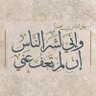 وإني لشر الناس
إن لم يعف عني